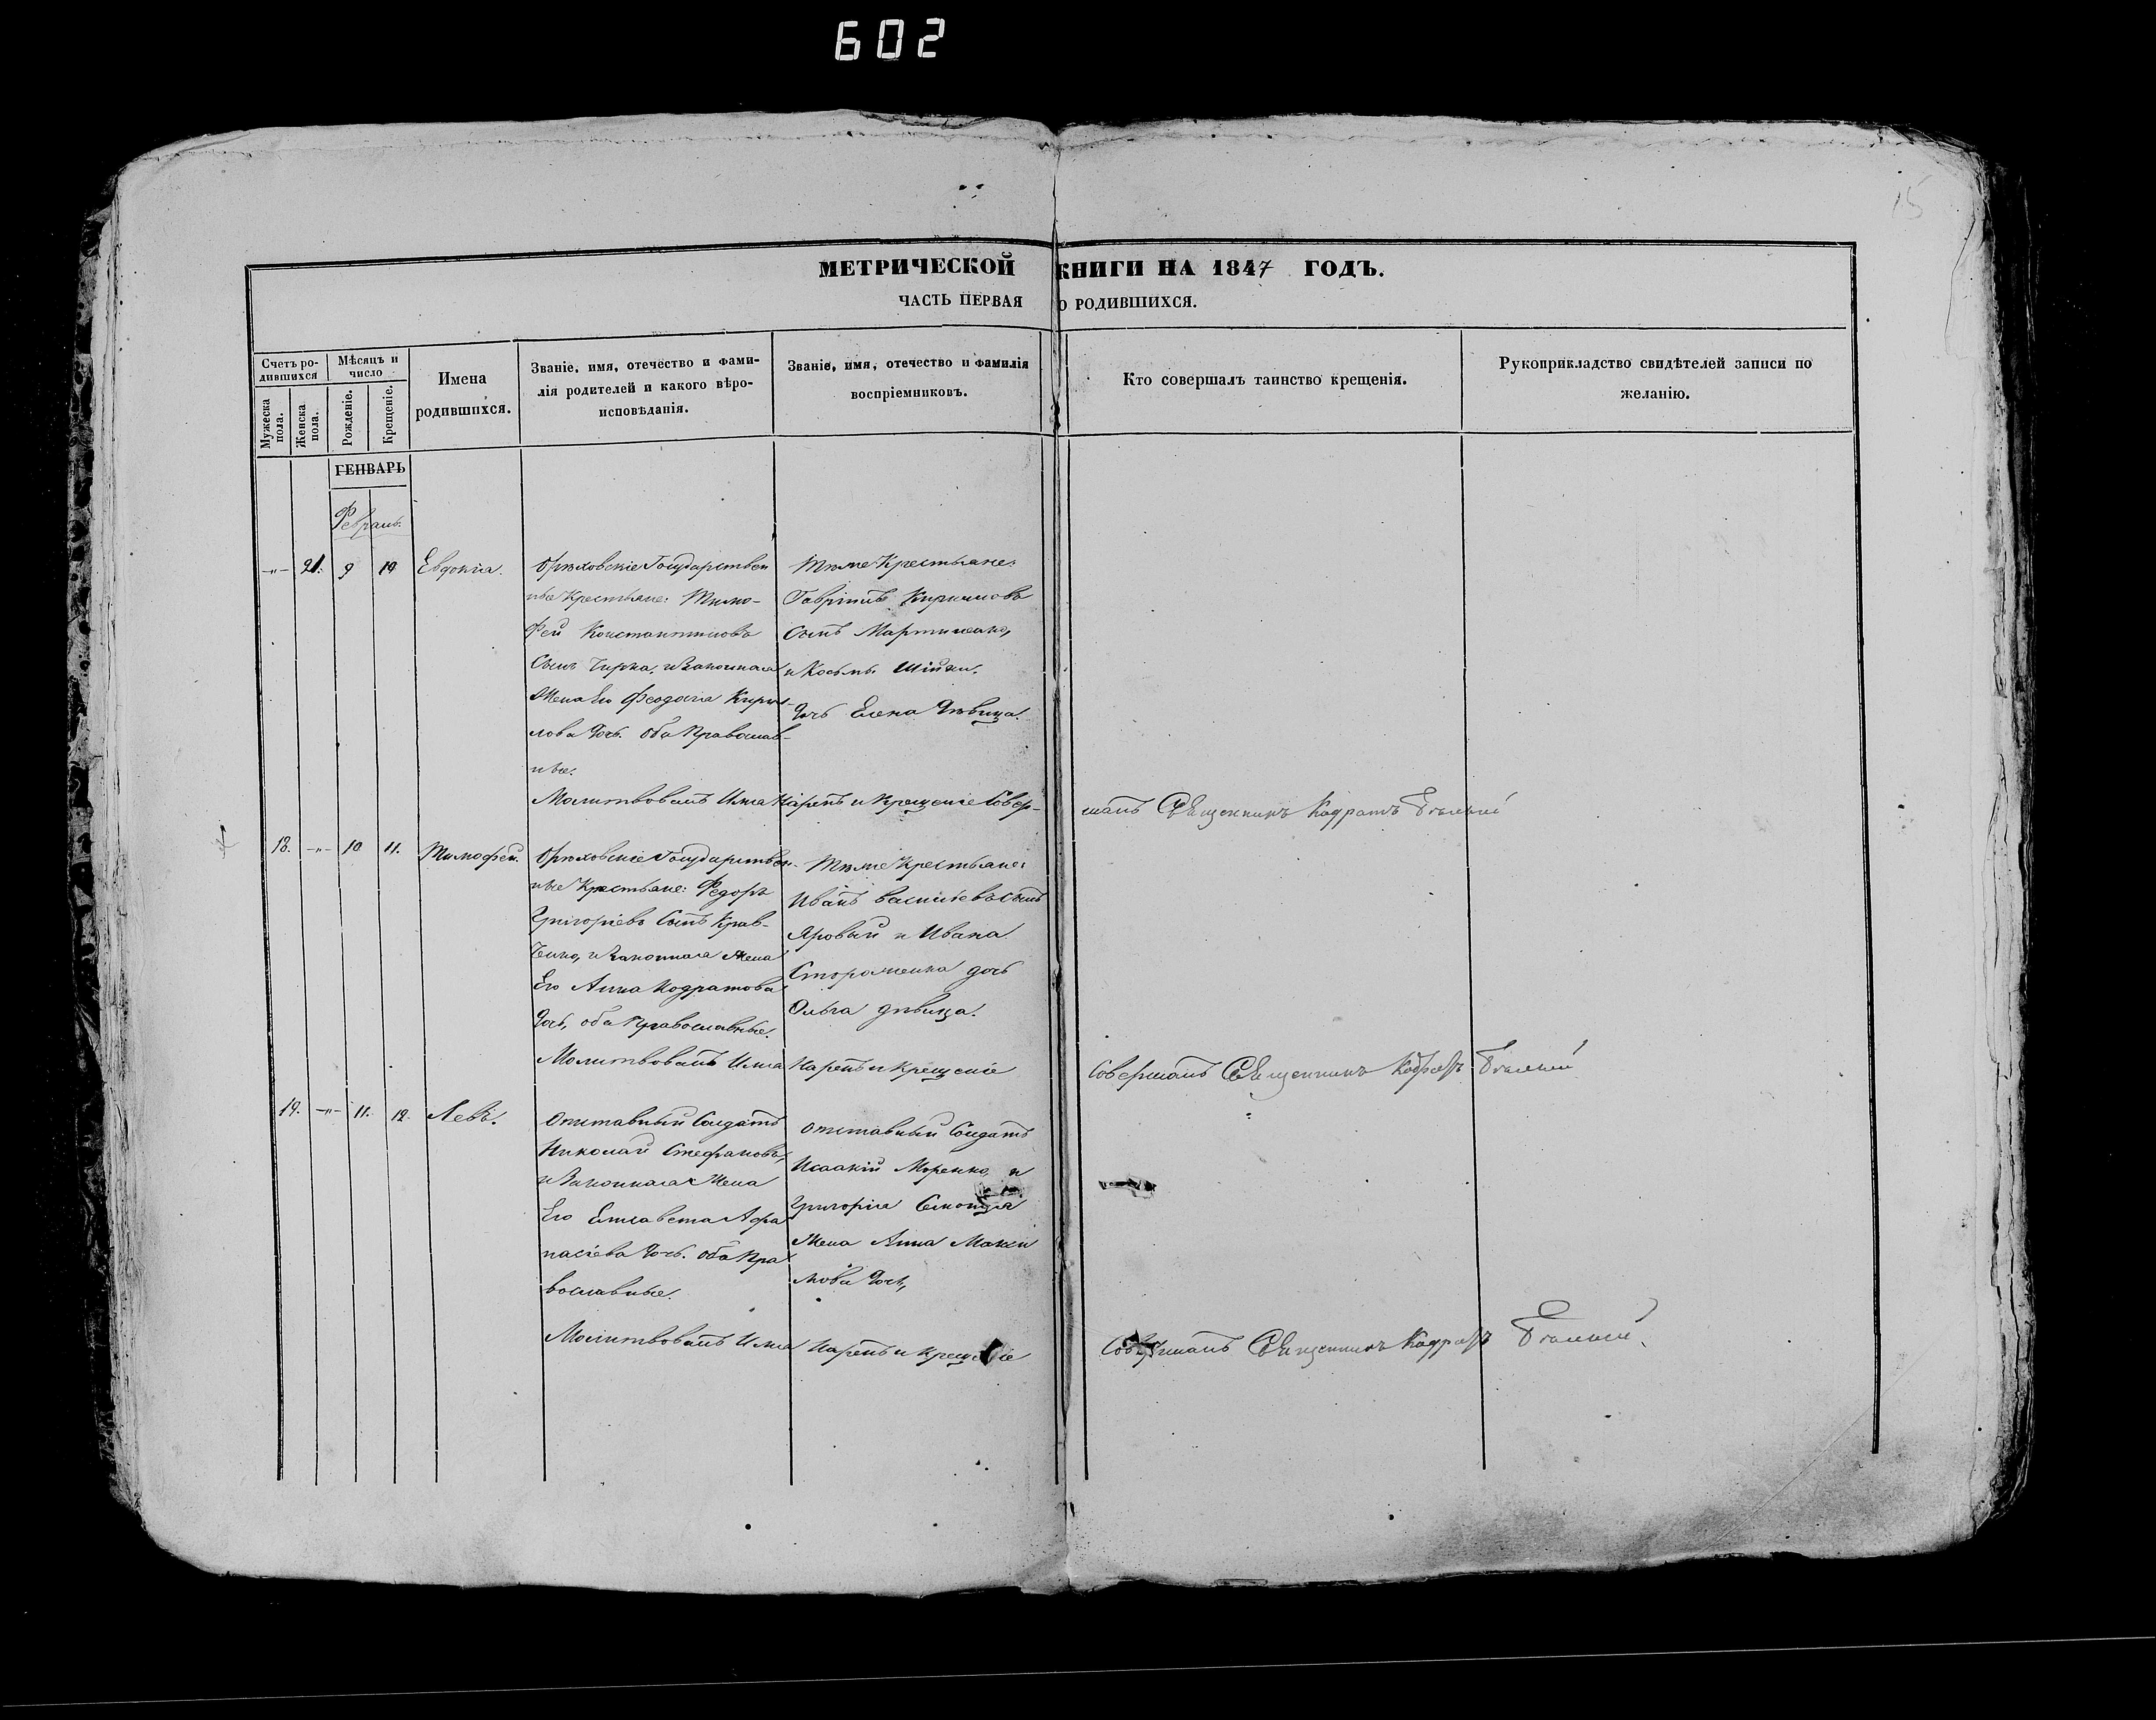 602
15
МЕТРИЧЕСКОЙ КНИГИ НА 1847 ГОДЪ.
ЧАСТЬ ПЕРВАЯ О РОДИВШИХСЯ.
Счетъ ро-
дившихся
Мужеска пола.
Женска пола.
Мѣсяцъ и
число
Рожденіе.
Крещеніе.
Имена
родившихся.
Званіе, имя, отечество и фами-
лія родителей и какого вѣро-
исповѣданія.
Званіе, имя, отечество и фамилія
воспріемниковъ.
Кто совершалъ таинство крещенія.
Рукоприкладство свидѣтелей записи по
желанію.
ГЕНВАРЬ
Февраль.
-"- 21. 9 10 Евдокія.
Орѣховскіе Государствен
ные Крестьяне: Тимо-
фей Константиновъ
Сынъ Чирка, и Законная
Жена Его Феодосія Кирил-
лова Дочь. Оба Православ-
ные.
Тѣже Крестьяне:
Гавріилъ Кириловъ
Сынъ Мартиненко,
и Косьмы Шійки,
Дочь Елена Дѣвица.
Молитвовалъ Имя Нарекъ и Крещеніе Совер-
шалъ Священникъ Кодратъ Бѣлый
18. -"- 10 11. Тимофей.
Орѣховскіе Государствен-
ные Крестьяне: Федоръ
Григоріевъ Сынъ Крав-
ченко, и Законная Жена
Его Анна Кодратова
Дочь, оба Православные.
Тѣже Крестьяне:
Иванъ Василіевъ Сынъ
Яровый и Ивана
Стороженка дочь
Ольга дѣвица.
Молитвовалъ Имя Нарекъ и Крещеніе
Совершалъ Священникъ Кодратъ Бѣлый
19. -"- 11. 12. Левъ.
Отставный Солдатъ
Николай Стефановъ,
и Законная Жена
Его Елисавета Афа
насіева Дочь. Оба Пра
вославные.
Отставный Солдатъ
Исаакій и
Григорія
Жена Анна Макси
мова Дочь,
Молитвовалъ Имя Нарекъ и Крещеніе
Совершалъ Священникъ Кодратъ Бѣлый.